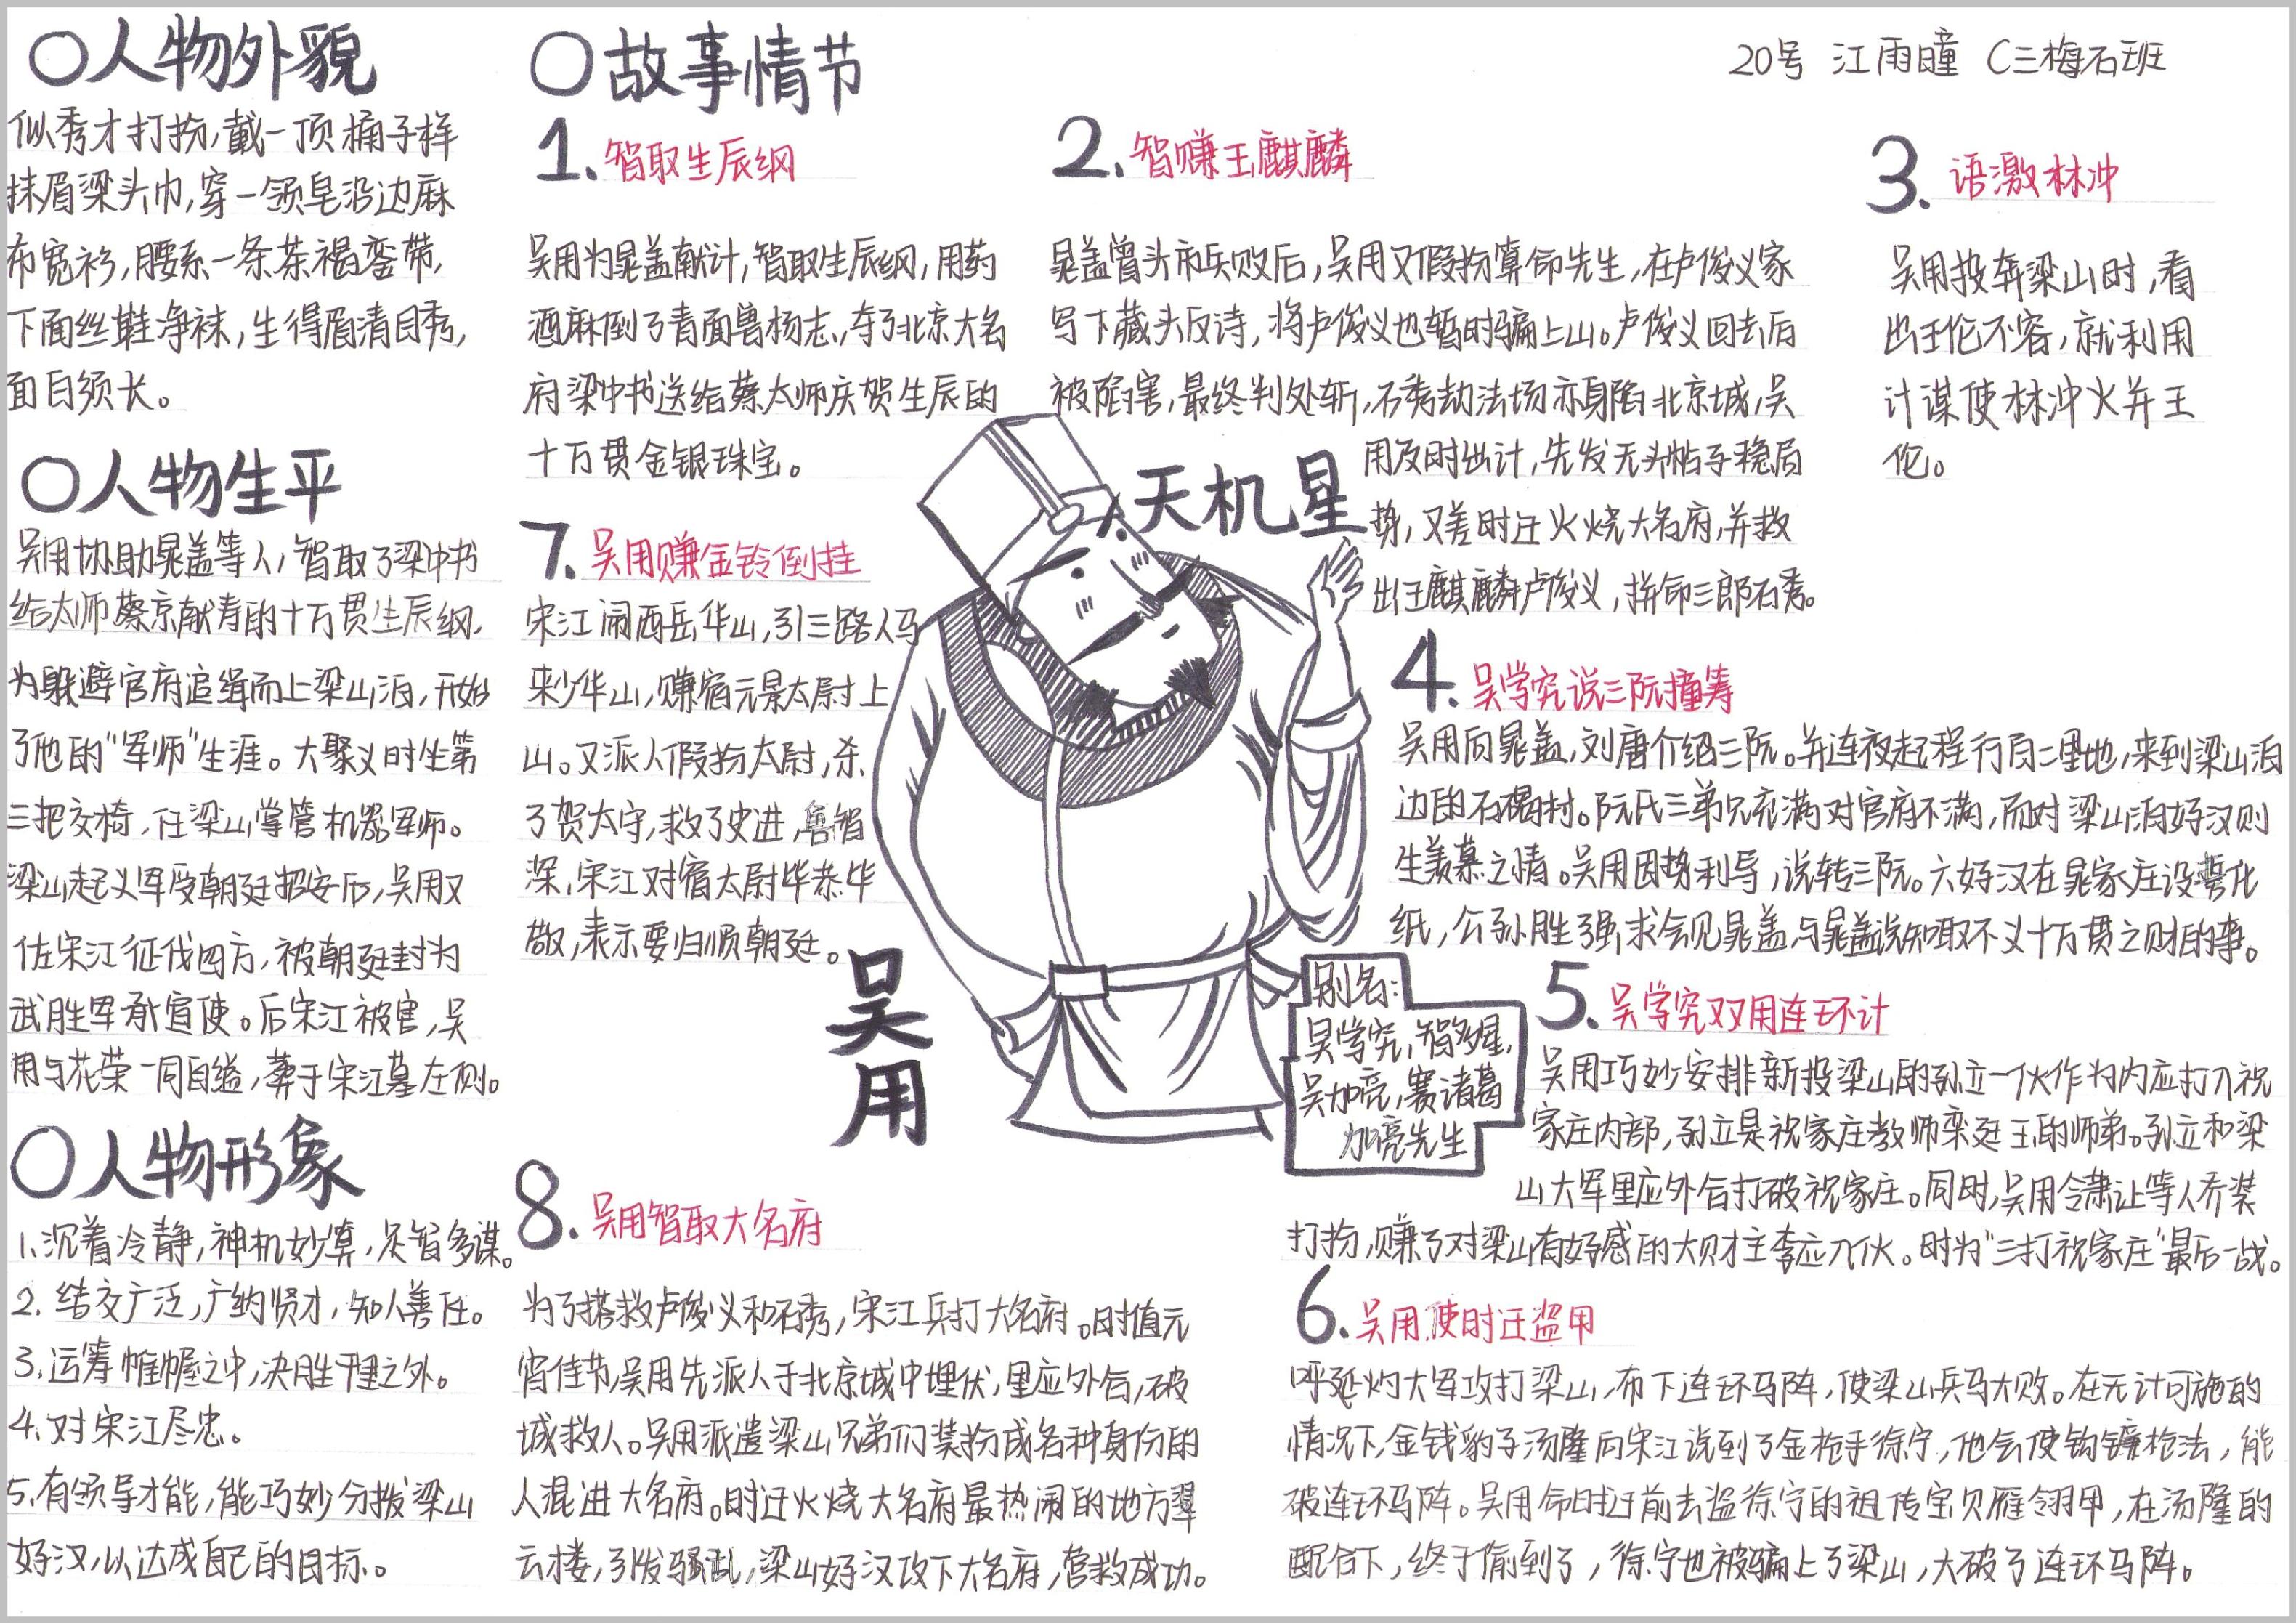 20号 江雨瞳 C三梅石班
○人物外貌
似秀才打扮,戴一顶桶子样
抹眉梁头巾,穿一领皂沿边麻
布宽衫,腰系一条茶褐銮带,
下面丝鞋净袜,生得眉清目秀,
面白须长。
○人物生平
吴用协助晁盖等人,智取了梁中书
给太师蔡京献寿的十万贯生辰纲,
为躲避官府追缉而上梁山泊,开始
了他的"军师"生涯。大聚义时坐第
三把交椅,任梁山掌管机器军师。
梁山起义军受朝廷招安后,吴用又
佐宋江征伐四方,被朝廷封为
武胜军承宣使。后宋江被害,吴
用与花荣一同自缢,葬于宋江墓左侧。
○人物形象
1.沉着冷静,神机妙算,足智多谋。
2.结交广泛,广纳贤才,知人善任。
3.运筹帷幄之中,决胜千里之外。
4.对宋江尽忠。
5.有领导才能,能巧妙分拨梁山
好汉,以达成自己的目标。
○故事情节
1.智取生辰纲
吴用为晁盖献计,智取生辰纲,用药
酒麻倒了青面兽杨志,夺了北京大名
府梁中书送给蔡太师庆贺生辰的
十万贯金银珠宝。
2.智赚玉麒麟
晁盖曾头市兵败后,吴用又假扮算命先生,在卢俊义家
写下藏头反诗,将卢俊义也暂时骗上山。卢俊义回去后
被陷害,最终判处斩,石秀劫法场亦身陷北京城,吴
用及时出计,先发无头帖子稳局
势,又差时迁火烧大名府,并救
出玉麒麟卢俊义,拼命三郎石秀。
3.语激林冲
吴用投奔梁山时,看
出王伦不容,就利用
计谋使林冲火并王
伦。
4.吴学究说三阮撞筹
吴用向晁盖,刘唐介绍三阮。并连夜起程行百二里地,来到梁山泊
边的石碣村。阮氏三弟兄充满对官府不满,而对梁山泊好汉则
生羡慕之情。吴用因势利导,说转三阮。六好汉在晁家庄设誓化
纸,公孙胜强求会见晁盖,与晁盖说知取不义十万贯之财的事。
5.吴学究双用连环计
吴用巧妙安排新投梁山的孙立一伙作为内应打入祝
家庄内部,孙立是祝家庄教师栾廷玉的师弟。孙立和梁
山大军里应外合打破祝家庄。同时,吴用令萧让等人乔装
打扮,赚了对梁山有好感的大财主李应入伙。时为"三打祝家庄"最后一战。
6.吴用使时迁盗甲
呼延灼大军攻打梁山,布下连环马阵,使梁山兵马大败。在无计可施的
情况下,金钱豹子汤隆向宋江说到了金枪手徐宁,他会使钩镰枪法,能
破连环马阵。吴用命时迁前去盗徐宁的祖传宝贝雁翎甲,在汤隆的
配合下,终于偷到了,徐宁也被骗上了梁山,大破了连环马阵。
7.吴用赚金铃倒挂
宋江闹西岳华山,引三路人马
来少华山,赚宿元景太尉上
山。又派人假扮太尉,杀
了贺太守,救了史进,鲁智
深,宋江对宿太尉毕恭毕
敬,表示要归顺朝廷。
8.吴用智取大名府
为了搭救卢俊义和石秀,宋江兵打大名府。时值元
宵佳节,吴用先派人于北京城中埋伏,里应外合,破
城救人。吴用派遣梁山兄弟们装扮成各种身份的
人混进大名府。时迁火烧大名府最热闹的地方翠
云楼,引发骚乱,梁山好汉攻下大名府,营救成功。
天机星
吴用
别名:
吴学究,智多星,
吴加亮,赛诸葛
加亮先生